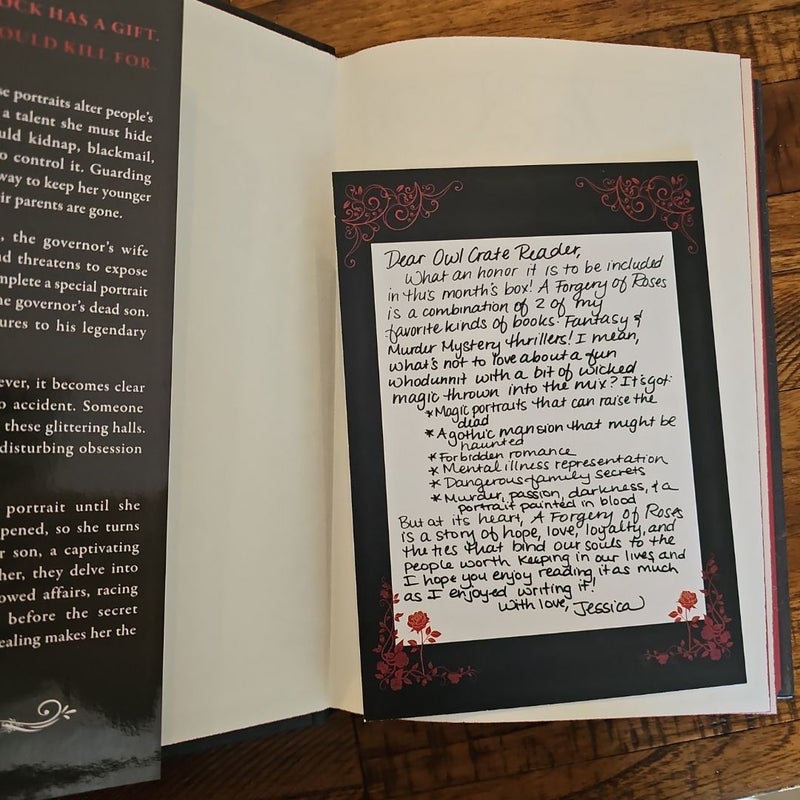 OCK HAS A GIFT.
OULD KILL FOR.
se portraits alter people's
a talent she must hide
uld kidnap, blackmail,
o control it. Guarding
way to keep her younger
ir parents are gone.
, the governor's wife
nd threatens to expose
mplete a special portrait
he governor's dead son.
ures to his legendary
ever, it becomes clear
o accident. Someone
these glittering halls.
disturbing obsession
portrait until she
pened, so she turns
r son, a captivating
her, they delve into
owed affairs, racing
before the secret
ealing makes her the
Dear Owl Crate Reader,
What an honor it is to be included
in this month's box! A Forgery of Roses
is a combination of 2 of my
favorite kinds of books: Fantasy &
Murder Mystery thrillers! I mean,
what's not to love about a fun
whodunnit with a bit of wicked
magic thrown into the mix? It's got:
* Magic portraits that can raise the
dead
* A gothic mansion that might be
haunted
* Forbidden romance
* Mental illness representation
* Dangerous family secrets
* Murder, passion, darkness, & a
portrait painted in blood
But at its heart, A Forgery of Roses
is a story of hope, love, loyalty, and
the ties that bind our souls to the
people worth keeping in our lives, and
I hope you enjoy reading it as much
as I enjoyed writing it!
With love, Jessica